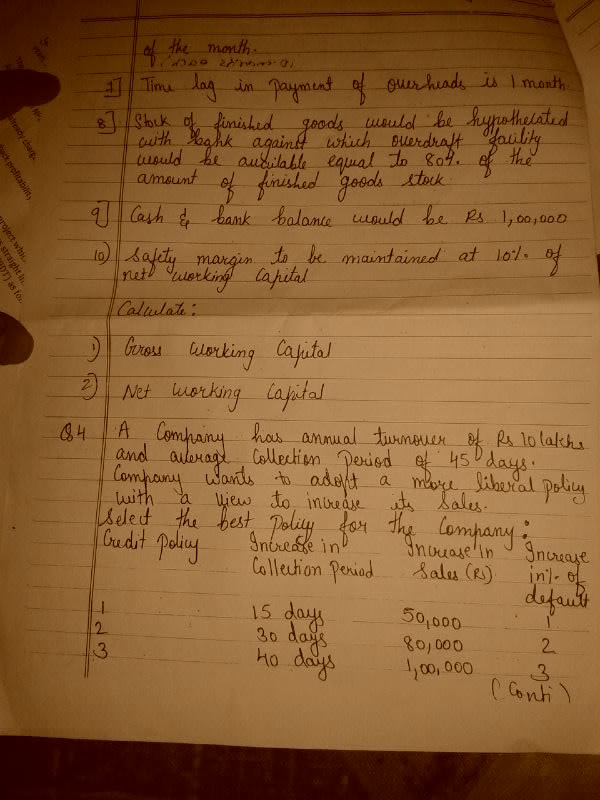 of the month.
7] Time lag in payment of overheads is 1 month.
8] Stock of finished goods would be hypothecated
with bank against which overdraft facility
would be available equal to 80% of the
amount of finished goods stock.
9] Cash & bank balance would be Rs 1,00,000
10) Safety margin to be maintained at 10% of
net working capital
Calculate:
1) Gross Working Capital
2) Net Working Capital
Q4 A Company has annual turnover of Rs 10 lakhs
and average Collection Period of 45 days.
Company wants to adopt a more liberal policy
with a view to increase its Sales.
Select the best Policy for the Company:
Credit Policy Increase in Increase In Increase
Collection Period Sales (Rs) in % of
default
1 15 days 50,000 1
2 30 days 80,000 2
3 40 days 1,00,000 3
(Conti)